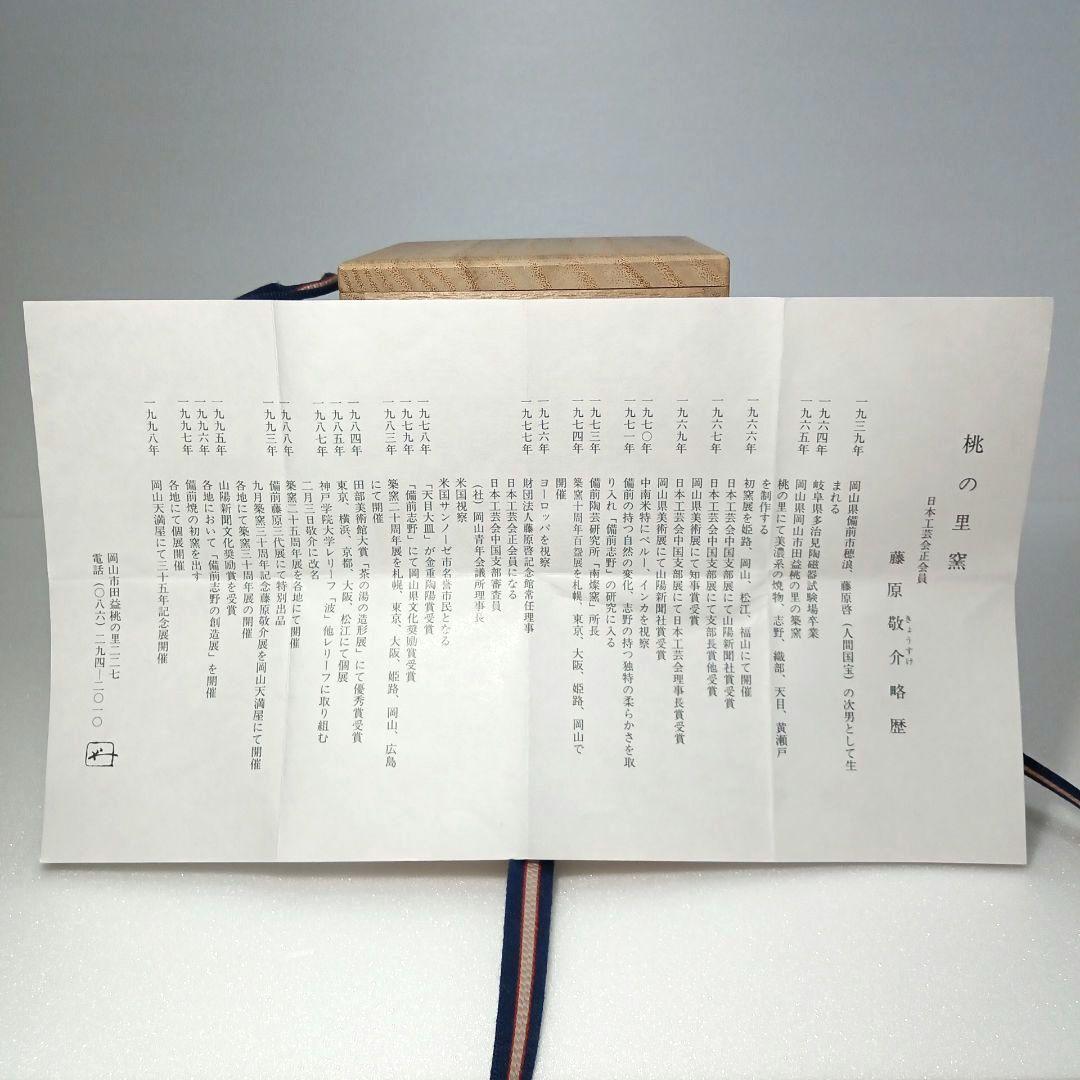 桃の里窯
日本工芸会正会員
藤原敬介略歴
きょうすけ
一九三九年 岡山県備前市穂浪、藤原啓（人間国宝）の次男として生
まれる
一九六四年 岐阜県多治見陶磁器試験場卒業
一九六五年 岡山県岡山市田益桃の里の築窯
桃の里にて美濃系の焼物、志野、織部、天目、黄瀬戸
を制作する
一九六六年 初窯展を姫路、岡山、松江、福山にて開催
日本工芸会中国支部展にて山陽新聞社賞受賞
一九六七年 日本工芸会中国支部展にて支部長賞他受賞
岡山県美術展にて知事賞受賞
一九六九年 日本工芸会中国支部展にて日本工芸会理事長賞受賞
岡山県美術展にて山陽新聞社賞受賞
一九七〇年 中南米特にペルー、インカを視察
一九七一年 備前の持つ自然の変化、志野の持つ独特の柔らかさを取
り入れ「備前志野」の研究に入る
一九七三年 備前陶芸研究所「南燦窯」所長
一九七四年 築窯十周年百盌展を札幌、東京、大阪、姫路、岡山で
開催
一九七六年 ヨーロッパを視察
一九七七年 財団法人藤原啓記念館常任理事
日本工芸会正会員になる
日本工芸会中国支部審査員
（社）岡山青年会議所理事長
米国視察
米国サンノーゼ市名誉市民となる
一九七八年 「天目大皿」が金重陶陽賞受賞
一九七九年 「備前志野」にて岡山県文化奨励賞受賞
一九八三年 築窯二十周年展を札幌、東京、大阪、姫路、岡山、広島
にて開催
一九八四年 田部美術館大賞「茶の湯の造形展」にて優秀賞受賞
一九八五年 東京、横浜、京都、大阪、松江にて個展
一九八七年 神戸学院大学レリーフ「波」他レリーフに取り組む
二月三日敬介に改名
一九八八年 築窯二十五周年展を各地にて開催
一九九三年 備前藤原三代展にて特別出品
九月築窯三十周年記念藤原敬介展を岡山天満屋にて開催
各地にて築窯三十周年展の開催
一九九五年 山陽新聞文化奨励賞を受賞
一九九六年 各地において「備前志野の創造展」を開催
一九九七年 備前焼の初窯を出す
各地にて個展開催
一九九八年 岡山天満屋にて三十五年記念展開催
岡山市田益桃の里二二七
電話（〇八六）二九四―二〇一〇